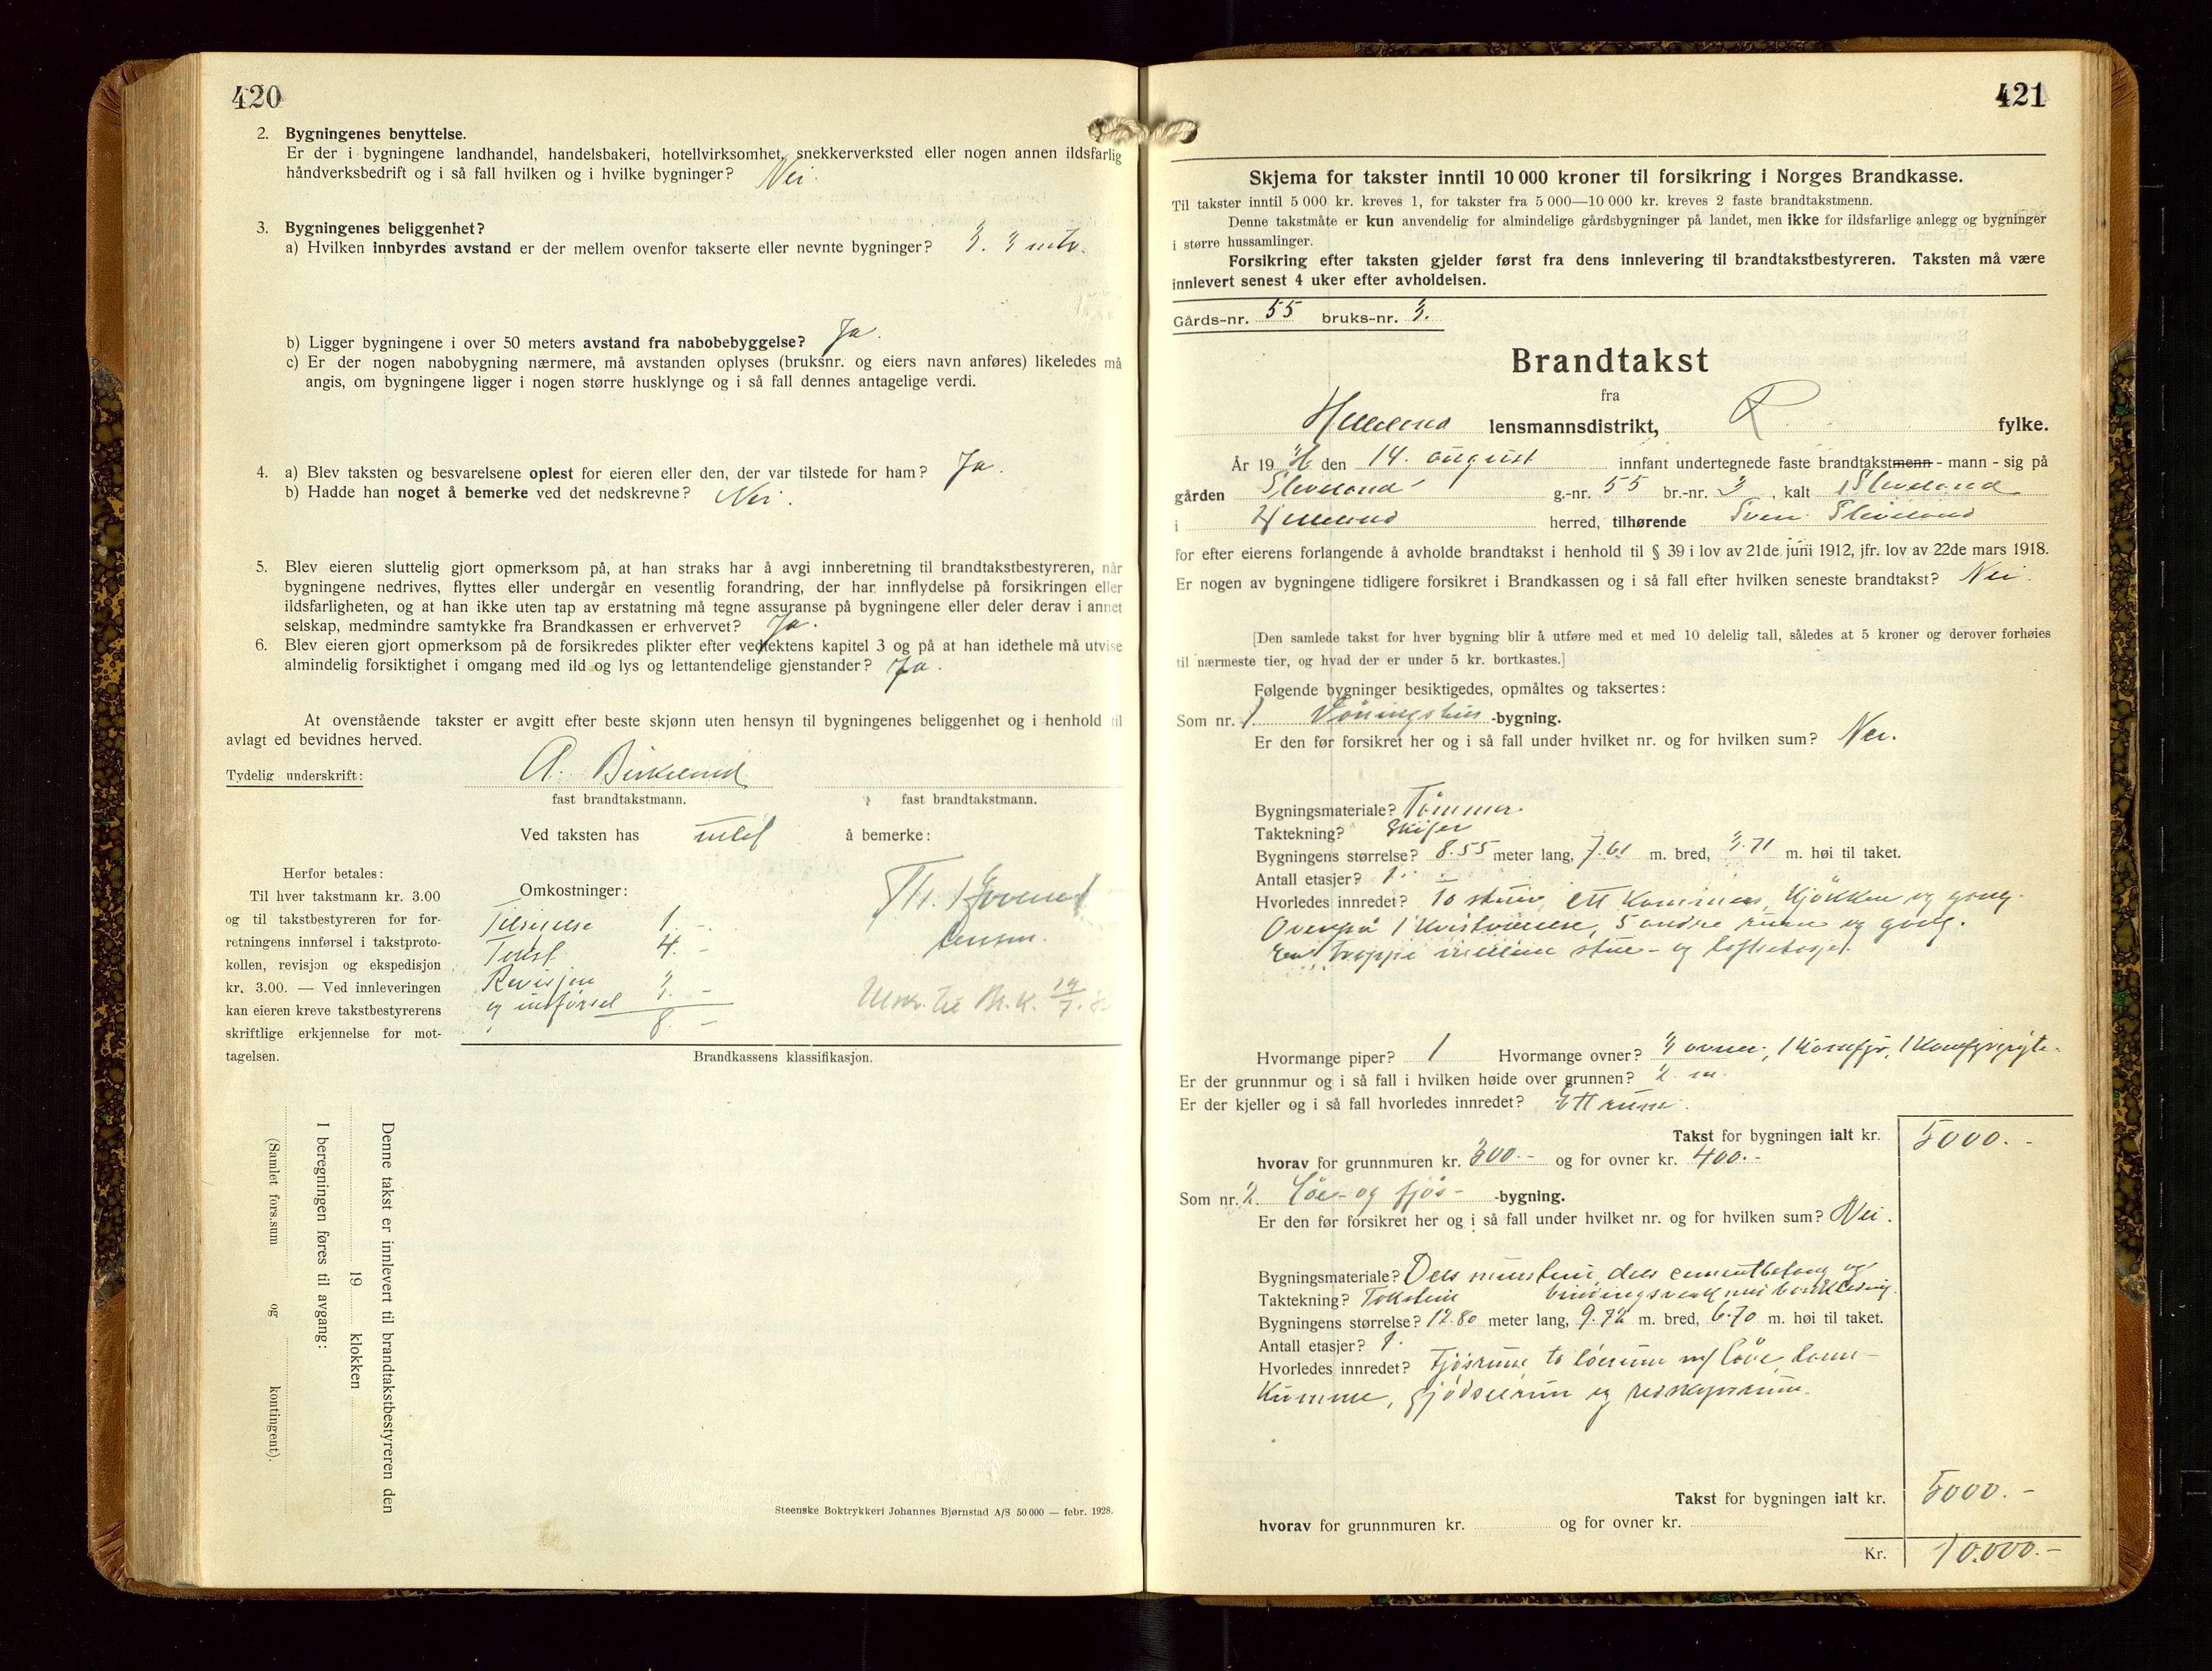 420
2. Bygningenes benyttelse.
Er der i bygningene landhandel, handelsbakeri, hotellvirksomhet, snekkerverksted eller nogen annen ildsfarlig
håndverksbedrift og i så fall hvilken og i hvilke bygninger? Nei.
3. Bygningenes beliggenhet?
a) Hvilken innbyrdes avstand er der mellem ovenfor takserte eller nevnte bygninger? 3. 3 mtr.
b) Ligger bygningene i over 50 meters avstand fra nabobebyggelse? Ja.
c) Er der nogen nabobygning nærmere, må avstanden oplyses (bruksnr. og eiers navn anføres) likeledes må
angis, om bygningene ligger i nogen større husklynge og i så fall dennes antagelige verdi.
4. a) Blev taksten og besvarelsene oplest for eieren eller den, der var tilstede for ham? Ja.
b) Hadde han noget å bemerke ved det nedskrevne? Nei.
5. Blev eieren sluttelig gjort opmerksom på, at han straks har å avgi innberetning til brandtakstbestyreren, når
bygningene nedrives, flyttes eller undergår en vesentlig forandring, der har innflydelse på forsikringen eller
ildsfarligheten, og at han ikke uten tap av erstatning må tegne assuranse på bygningene eller deler derav i annet
selskap, medmindre samtykke fra Brandkassen er erhvervet? Ja.
6. Blev eieren gjort opmerksom på de forsikredes plikter efter vedtektens kapitel 3 og på at han idethele må utvise
almindelig forsiktighet i omgang med ild og lys og lettantendelige gjenstander? Ja.
At ovenstående takster er avgitt efter beste skjønn uten hensyn til bygningenes beliggenhet og i henhold til
avlagt ed bevidnes herved.
Tydelig underskrift: A. Birkeland
fast brandtakstmann. fast brandtakstmann.
Ved taksten has intet å bemerke:
Herfor betales:
Til hver takstmann kr. 3.00
og til takstbestyreren for for-
retningens innførsel i takstproto-
kollen, revisjon og ekspedisjon
kr. 3.00. — Ved innleveringen
kan eieren kreve takstbestyrerens
skriftlige erkjennelse for mot-
tagelsen.
Omkostninger:
Tilsigelse 1.-
Takst 4.-
Revisjon
og innførsel 3.-
8.-
Th.
lensm.
Br. K.
Brandkassens klassifikasjon.
Denne takst er innlevert til brandtakstbestyreren den
19 klokken
I beregningen føres til avgang:
(Samlet fors.sum og kontingent).
Steenske Boktrykkeri Johannes Bjørnstad A/S 50 000 — febr. 1928.
421
Skjema for takster inntil 10 000 kroner til forsikring i Norges Brandkasse.
Til takster inntil 5 000 kr. kreves 1, for takster fra 5 000—10 000 kr. kreves 2 faste brandtakstmenn.
Denne takstmåte er kun anvendelig for almindelige gårdsbygninger på landet, men ikke for ildsfarlige anlegg og bygninger
i større hussamlinger.
Forsikring efter taksten gjelder først fra dens innlevering til brandtakstbestyreren. Taksten må være
innlevert senest 4 uker efter avholdelsen.
Gårds-nr. 55 bruks-nr. 3.
Brandtakst
fra
Helleland lensmannsdistrikt, R. fylke.
År 19 den 14. august innfant undertegnede faste brandtakstmenn - mann - sig på
gården Sleveland g.-nr. 55 br.-nr. 3, kalt Sleveland
i Helleland herred, tilhørende Sven Sleveland
for efter eierens forlangende å avholde brandtakst i henhold til § 39 i lov av 21de juni 1912, jfr. lov av 22de mars 1918.
Er nogen av bygningene tidligere forsikret i Brandkassen og i så fall efter hvilken seneste brandtakst? Nei.
[Den samlede takst for hver bygning blir å utføre med et med 10 delelig tall, således at 5 kroner og derover forhøies
til nærmeste tier, og hvad der er under 5 kr. bortkastes.]
Følgende bygninger besiktigedes, opmåltes og taksertes:
Som nr. 1 Våningshus -bygning.
Er den før forsikret her og i så fall under hvilket nr. og for hvilken sum? Nei.
Bygningsmateriale? Tømmer
Taktekning? Skifer
Bygningens størrelse? 8.55 meter lang, 7.61 m. bred, 3.71 m. høi til taket.
Antall etasjer? 1.
Hvorledes innredet? To stuer, ett kammers, kjøkken og gang.
Ovenpå 1 kvistværelse, 5 andre rum og gang.
En trappe mellem stue- og loftsetasje.
Hvormange piper? 1 Hvormange ovner? 3 ovner, 1 komfyr, 1 komfyrgryte.
Er der grunnmur og i så fall i hvilken høide over grunnen? 2 m.
Er der kjeller og i så fall hvorledes innredet? Ett rum.
Takst for bygningen ialt kr. 5000.-
hvorav for grunnmuren kr. 300.- og for ovner kr. 400.-
Som nr. 2. Løe- og fjøs- -bygning.
Er den før forsikret her og i så fall under hvilket nr. og for hvilken sum? Nei.
Bygningsmateriale? Dels murstein, dels cementbetong og
bindingsverk med bordkledning.
Taktekning? Takstein
Bygningens størrelse? 12.80 meter lang, 9.72 m. bred, 6.70 m. høi til taket.
Antall etasjer? 1.
Hvorledes innredet? Fjøsrum, to løerum m/ låve, land-
kumme, gjødselrum og redskapsrum.
Takst for bygningen ialt kr. 5000.-
hvorav for grunnmuren kr. og for ovner kr.
Kr. 10.000.-